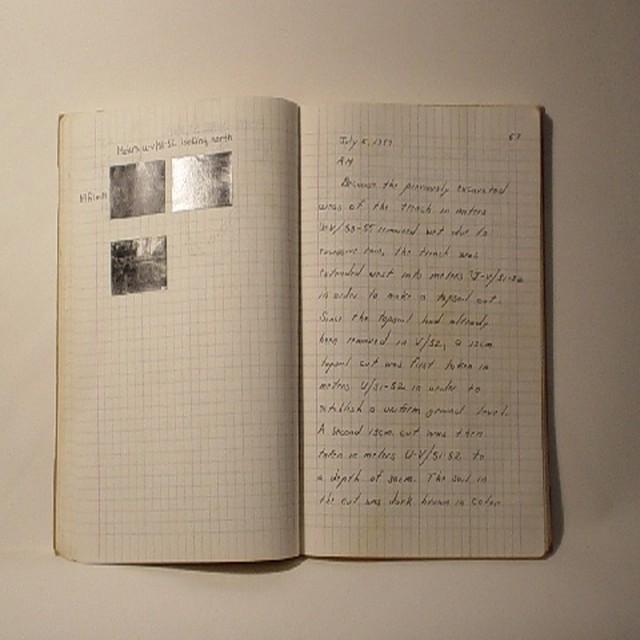 Meters U-V/51-52 looking north
67
July 5, 1957
AM
Because the previously excavated
areas of the trench in meters
remained wet due to
rain, the trench was
extended west into meters U-V/51-52
in order to make a topsoil cut.
Since the topsoil had already
been removed in V/52, a 15cm
topsoil cut was first taken in
meters U/51-52 in order to
establish a uniform ground level.
A second 15cm cut was then
taken in meters U-V/51-52 to
a depth of 30cm. The soil in
the cut was dark brown in color